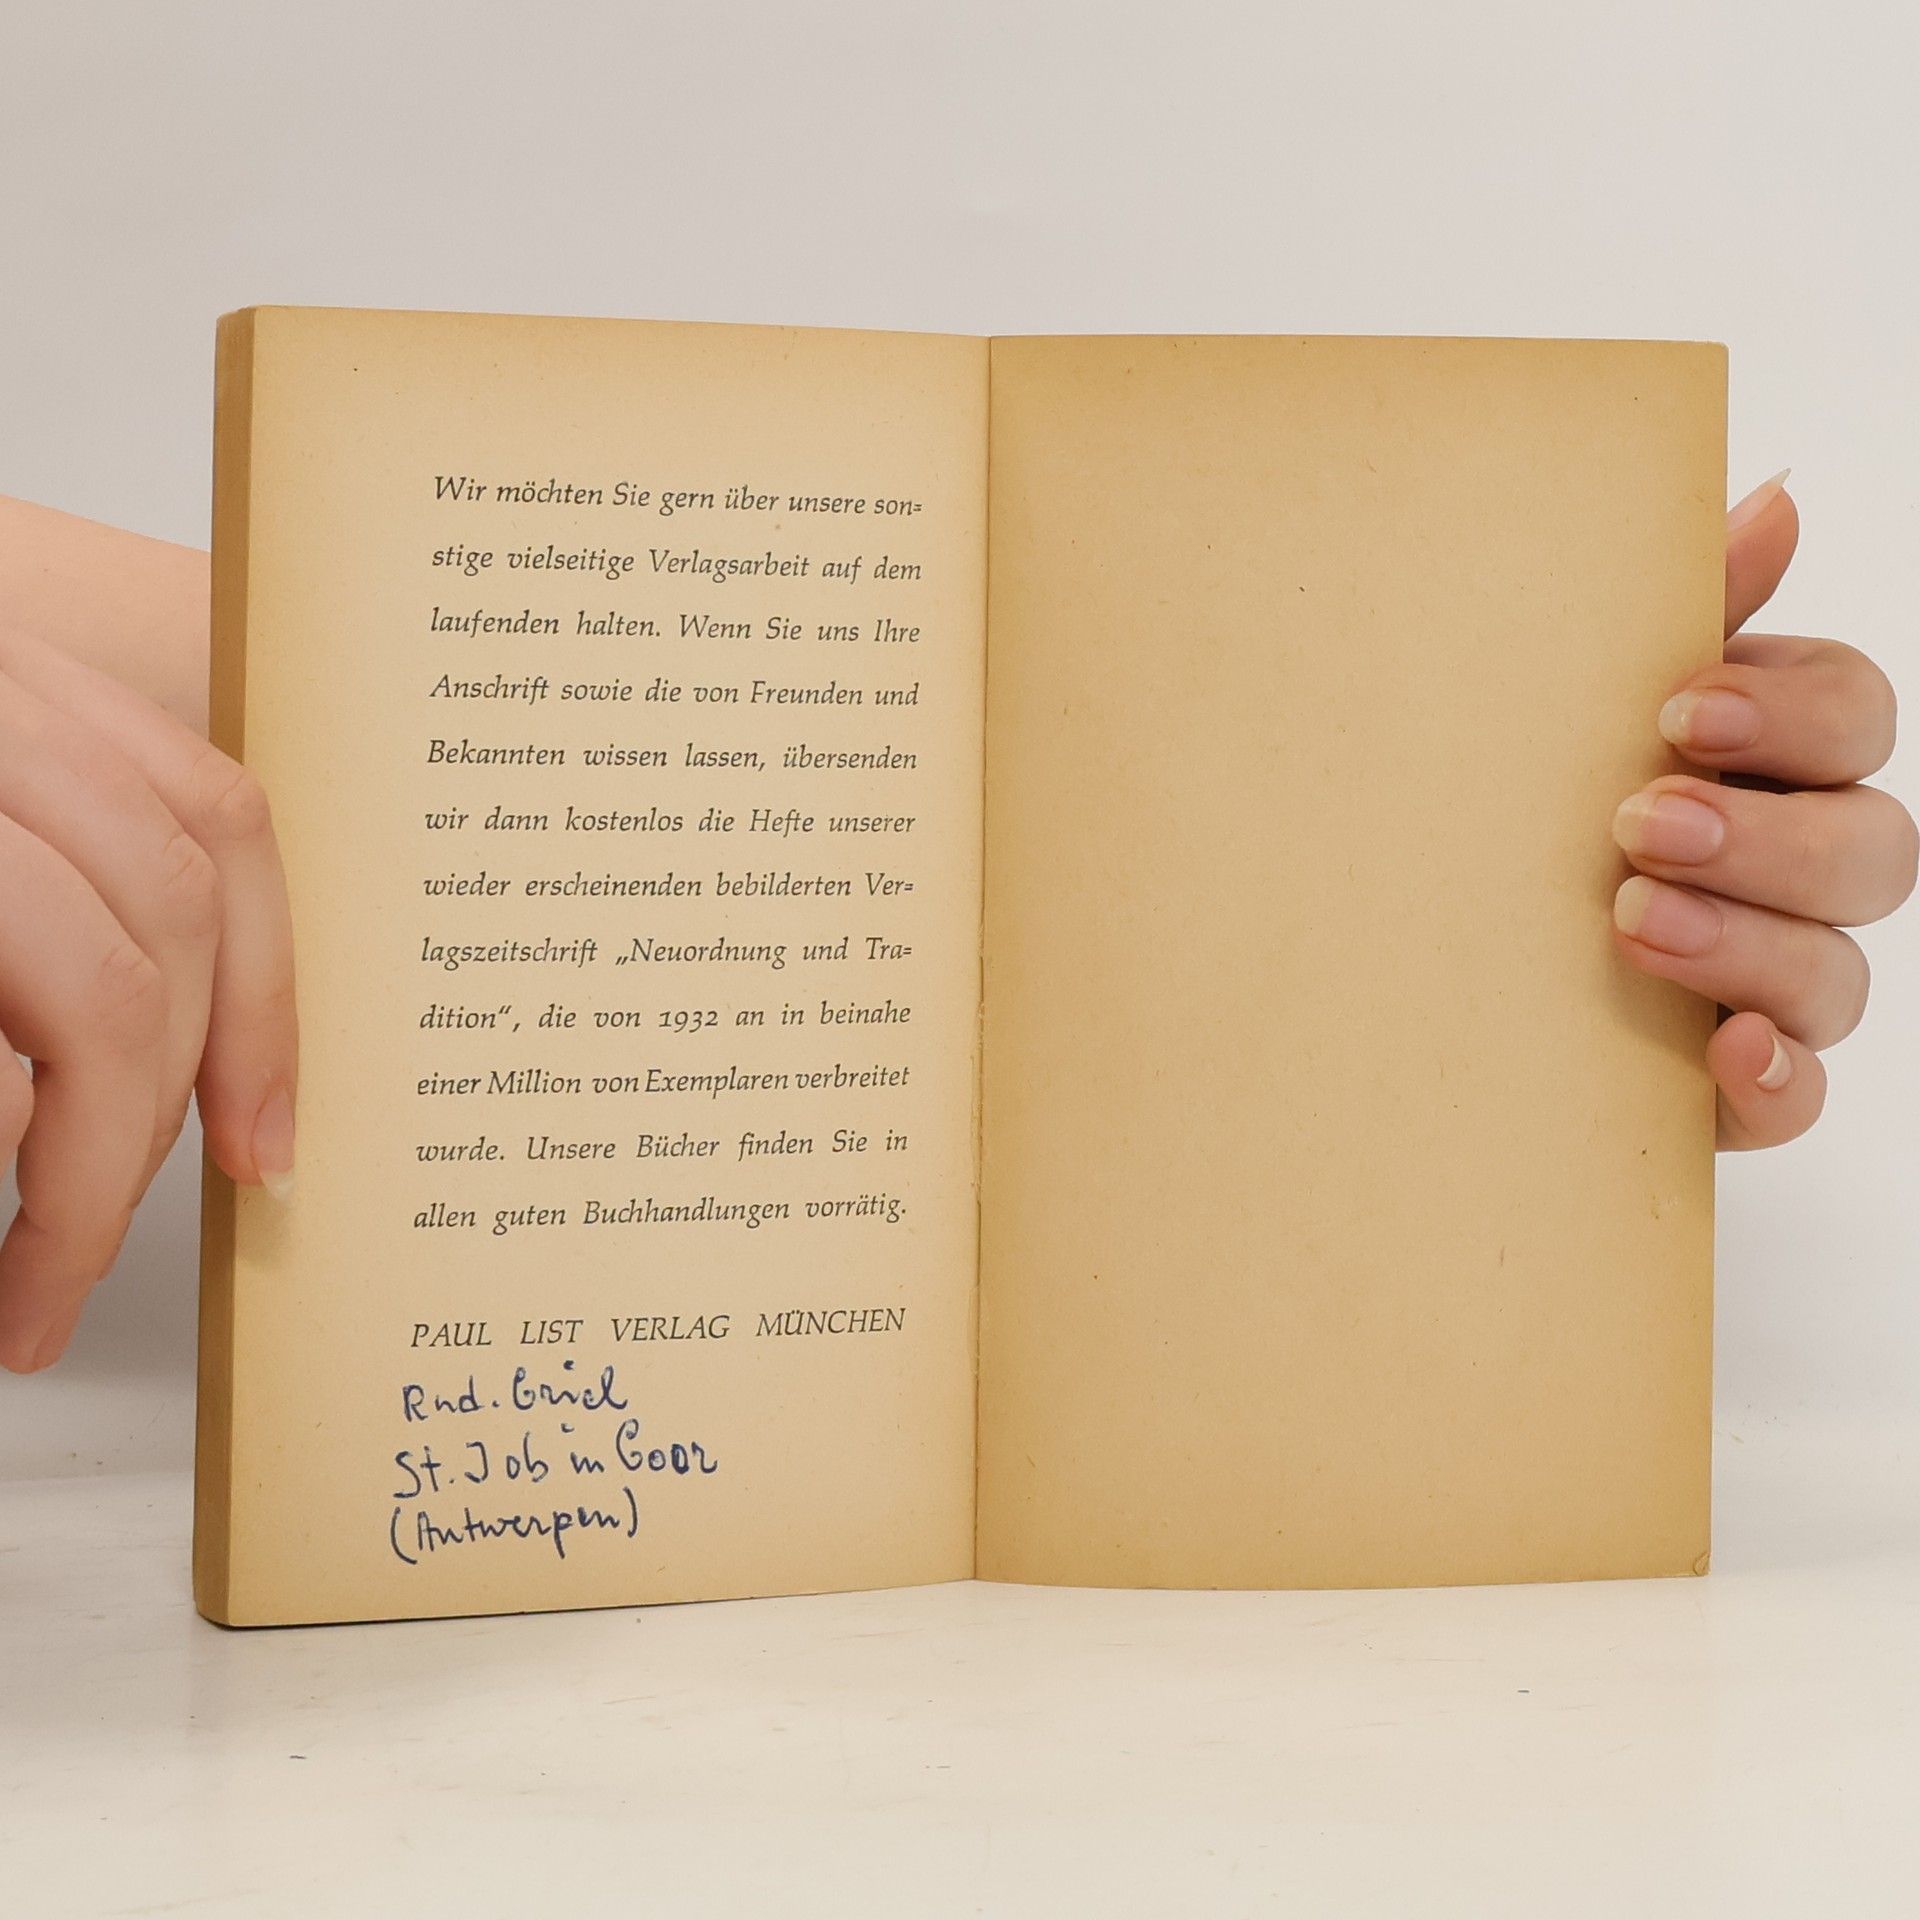 Wir möchten Sie gern über unsere son=
stige vielseitige Verlagsarbeit auf dem
laufenden halten. Wenn Sie uns Ihre
Anschrift sowie die von Freunden und
Bekannten wissen lassen, übersenden
wir dann kostenlos die Hefte unserer
wieder erscheinenden bebilderten Ver=
lagszeitschrift „Neuordnung und Tra=
dition“, die von 1932 an in beinahe
einer Million von Exemplaren verbreitet
wurde. Unsere Bücher finden Sie in
allen guten Buchhandlungen vorrätig.
PAUL LIST VERLAG MÜNCHEN
Rud.
St. Job in Goor
(Antwerpen)